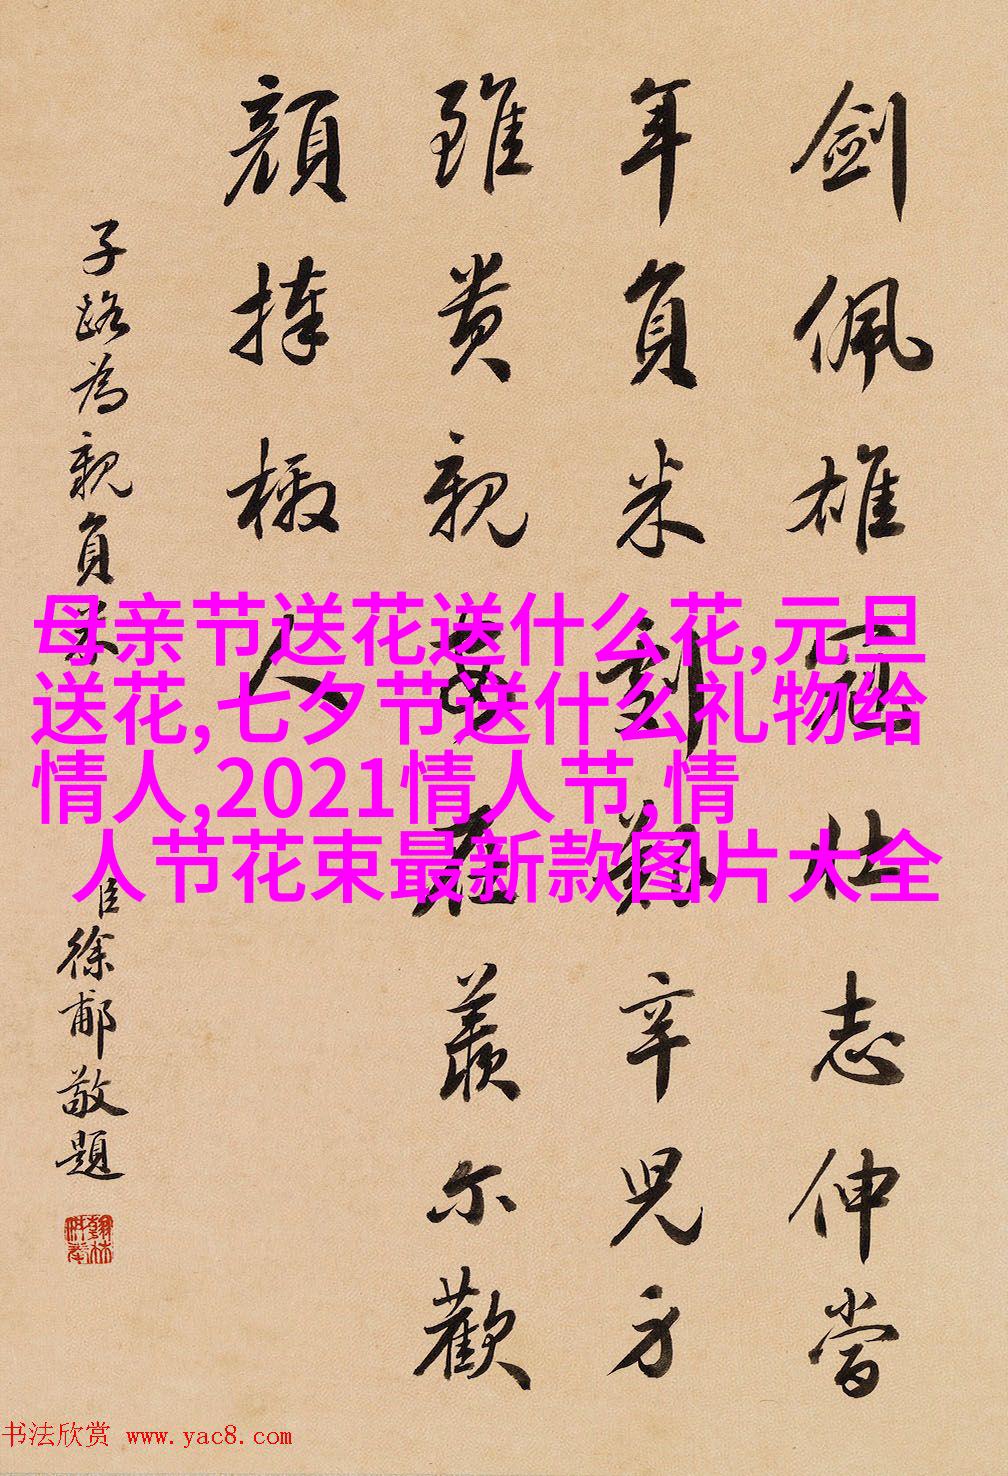 劍佩雄冠壮志伸當
年負米到辛兒方
雖贵親在羨尔歡
顔捧檄人
子路為親負米
臣徐郙敬題
母亲节送花送什么花,元旦
送花,七夕节送什么礼物给
情人,2021情人节,情
人节花束最新款图片大全
书法欣赏 www.yac8.com